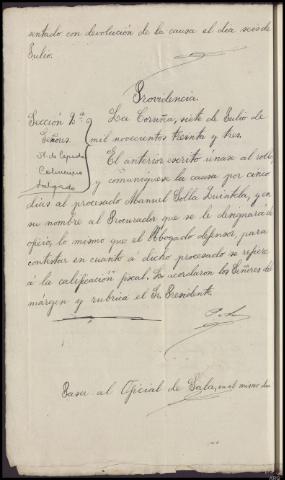 sentado con devolución de la causa el dia seis de
Julio.
Providencia.
Sección 2ª
Señores
La Coruña, siete de Julio de
mil novecientos treinta y tres.
El anterior escrito únase al rollo
y comuníquese la causa por cinco
Salgado
dias al procesado Manuel Solla Quintela, y en
su nombre al Procurador que se le designará de
oficio, lo mismo que el Abogado defensor, para
contestar en cuanto a dicho procesado se refiere
á la calificación fiscal. Lo acordaron los Señores del
márgen y rubrica el Sr. Presidente.
Pasa al Oficial de Sala, en el mismo dia